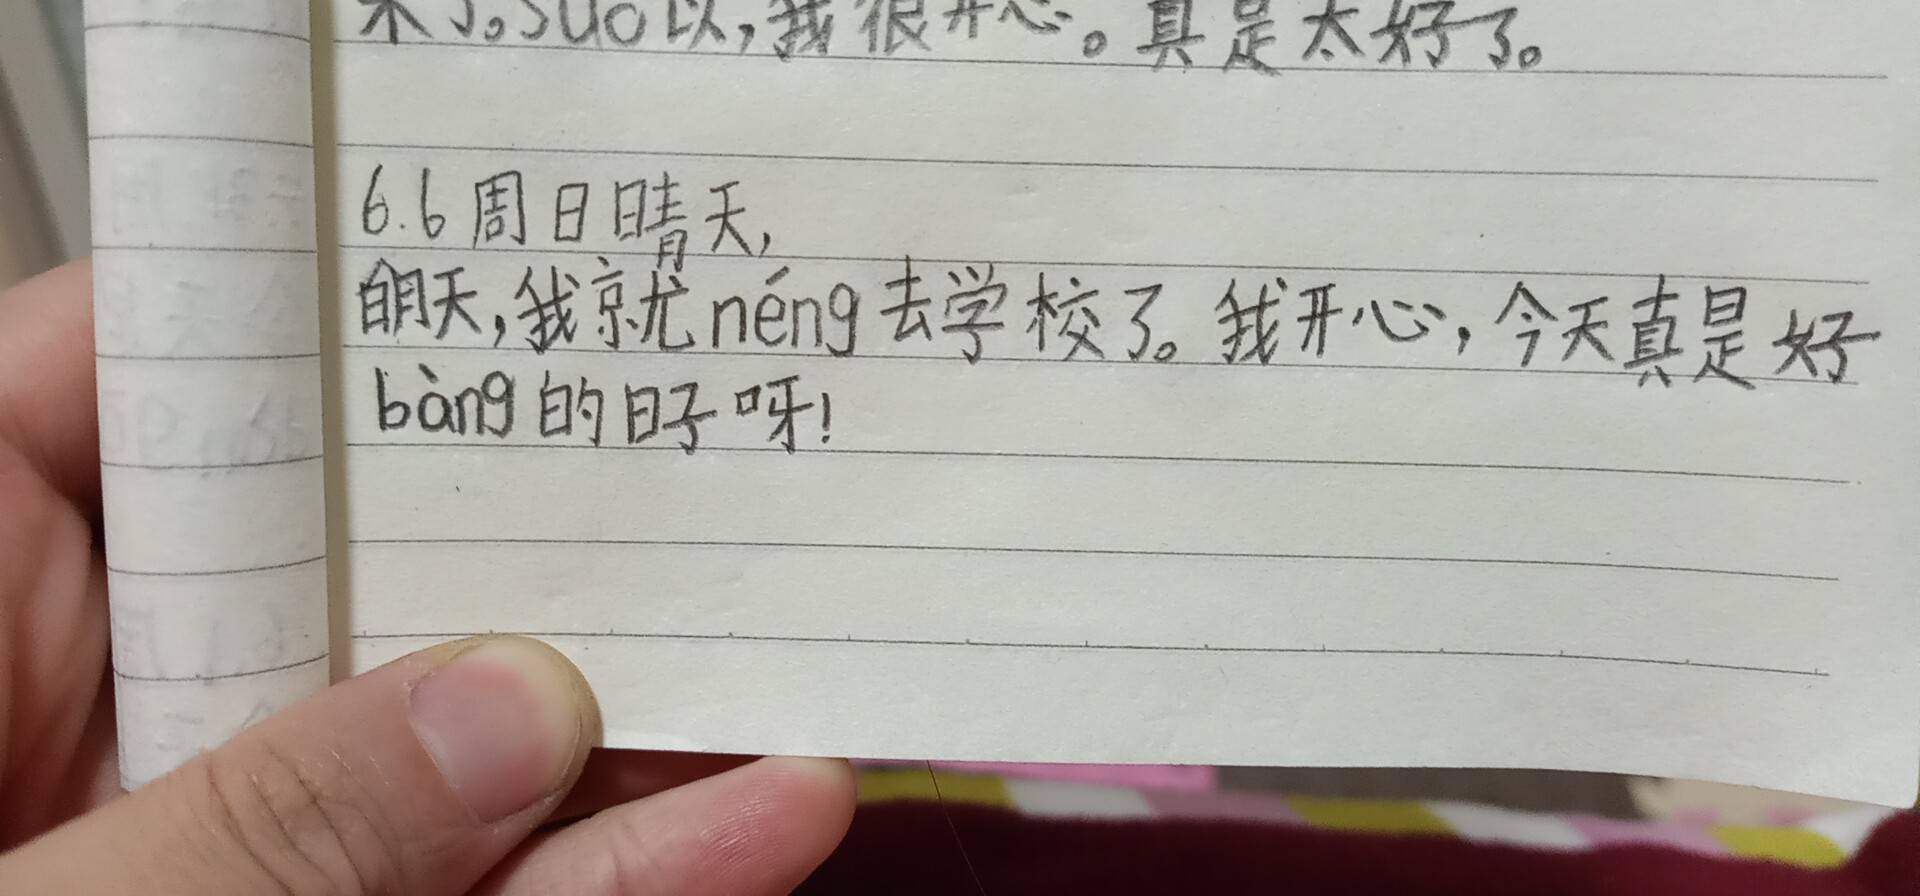 来了。suo以,我很开心。真是太好了。
6.6周日晴天,
明天,我就néng去学校了。我开心,今天真是好
bàng的日子呀!